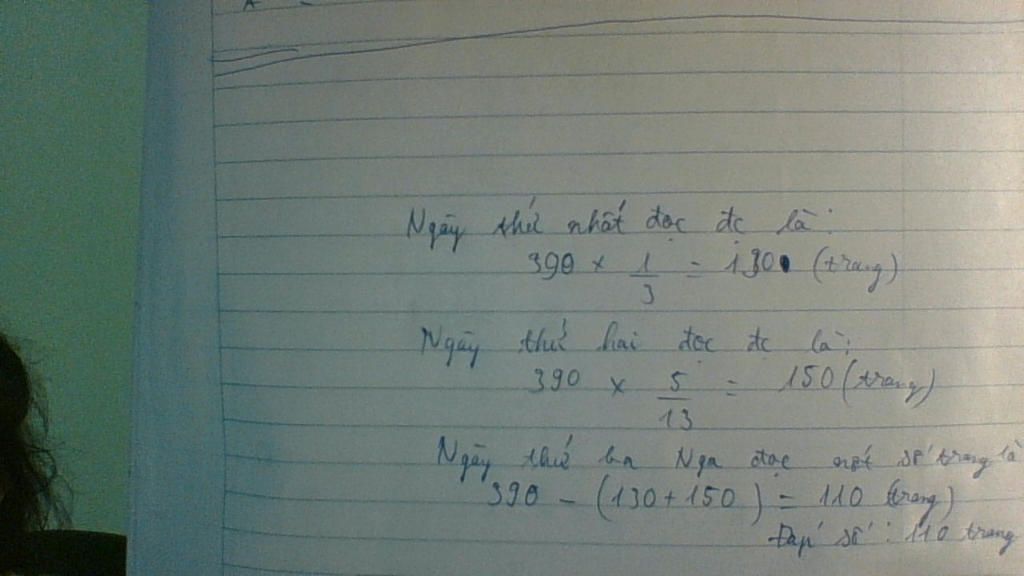 Ngày thứ nhất đọc đc là:
390 × 1/3 = 130 (trang)
Ngày thứ hai đọc đc là:
390 × 5/13 = 150 (trang)
Ngày thứ ba Nga đọc nốt số trang là
390 - (130 + 150) = 110 (trang)
Đáp số: 110 trang